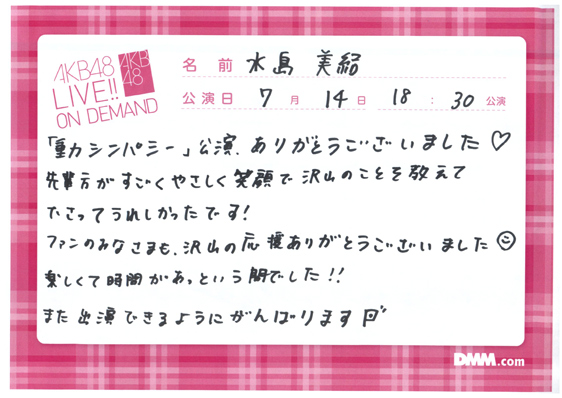 AKB48
LIVE!!
ON DEMAND
AKB
48
名前 水島 美結
公演日 7月 14日 18:30 公演
「動カシンパシー」公演、ありがとうございました♡
先輩方がすごくやさしく笑顔で沢山のことを教えて
下さってうれしかったです!
ファンのみなさまも、沢山の応援ありがとうございました☺
楽しくて時間があっという間でした!!
また出演できるようにがんばります
DMM.com